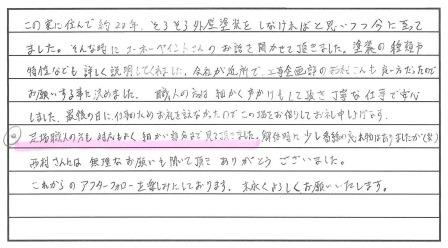 この家に住んで約20年、そろそろ外壁塗装をしなければと思いつつ今に至って
ました。そんな時にユーホーペイントさんのお話を聞かせて頂きました。塗装の種類や
特性なども詳しく説明してくれました。会社が近所で、工事企画部の西村さんも良い方だったので
お願いする事に決めました。職人の方は細かく手がかりもして頂き丁寧な仕事で安心
しました。最後の日に仕事のためお礼を言えなかったのでこの場をお借りしてお礼申し上げます。
足場職人の方も細かい部分まで見て頂きました。解体時に少し
西村さんには無理なお願いも聞いて頂てありがとうございました。
これからのアフターフォローを楽しみにしております。末永くよろしくお願いいたします。